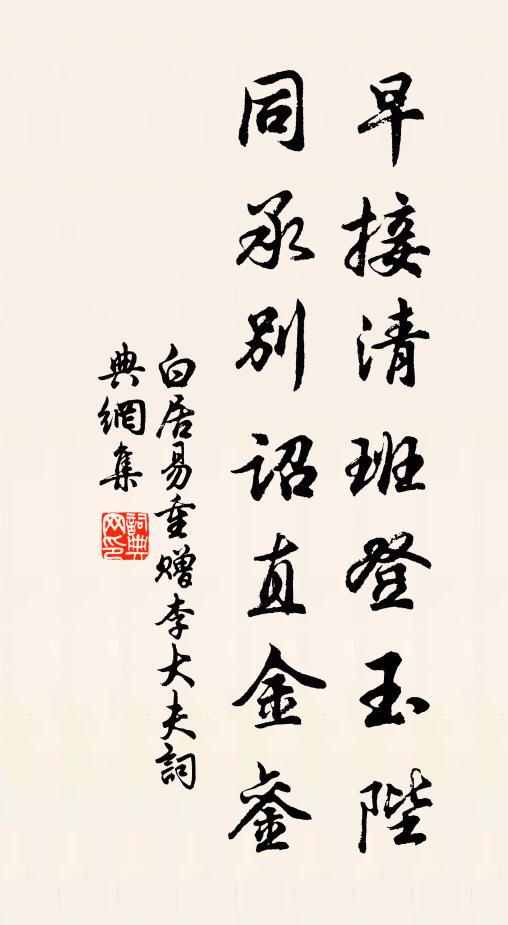 早接清班登玉陛
同承别詔直金鑾
白居易重赠李大夫詞
典網集
詞典
网印